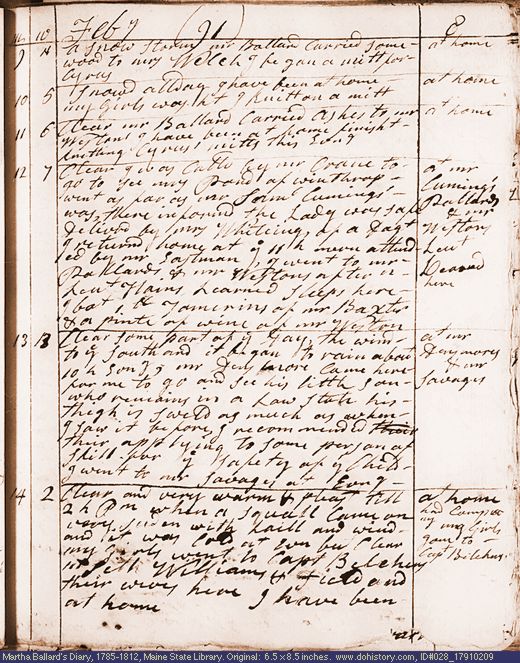 m D Feby (91)
9 4 a snow storm mr Ballard Carried some- at home
wood to mrs Welch I began a mitt for
Cyrus
10 5 Snowd all day I have been at home- at home
my Girls washt I knit on a mitt
11 6 Clear mr Ballard Carried ashes to mr at home
Westons I have been at home finisht
knitting Cyrus' mitts this Evng
12 7 Clear I was Calld by mr Crane to- at mr
go to see mrs Pond of winthrop Cumings
went as far as mr Saml Cumings' Pollards
was there informd the Lady was safe & mr
Deliverd by mrs Whiteing of a Dagt Westons
I returnd home at 11 h morn attend Leut
ed by mr Eastman I went to mr Dearnd
Pollards & mr Westons after n- here
Leut Harns Learned sleeps here-
I bot 1 lb Tamerins of mr Baxter
& a pinte of wine of mr Weston
13 Clear some part of ye Day, the win- at mr
to ye south and it began to rain about Densmores
10 h Evng mr Densmore Came here- & mr
for me to go and see his little son- Savages
who remains in a Low state his
thigh is sweld as much as when-
I saw it before, I recommended
their applying to some person of
skill for ye safety of ye Child
I went to mr Savages at Evng-
14 2 Clear and very warm & pleast till at home
2 h Pm when a squall Came on had Company
very suden with haill and wind my Girls
and it was Cold at Evn but Clear gone to
my Girls went to Capt Belchers Capt Bilchers.
Williams & Field and
their wives here I have been
at home
Martha Ballard's Diary, 1785-1812, Maine State Library. Original: 6.5 x 8.5 inches. www.dohistory.com, ID#028_17910209